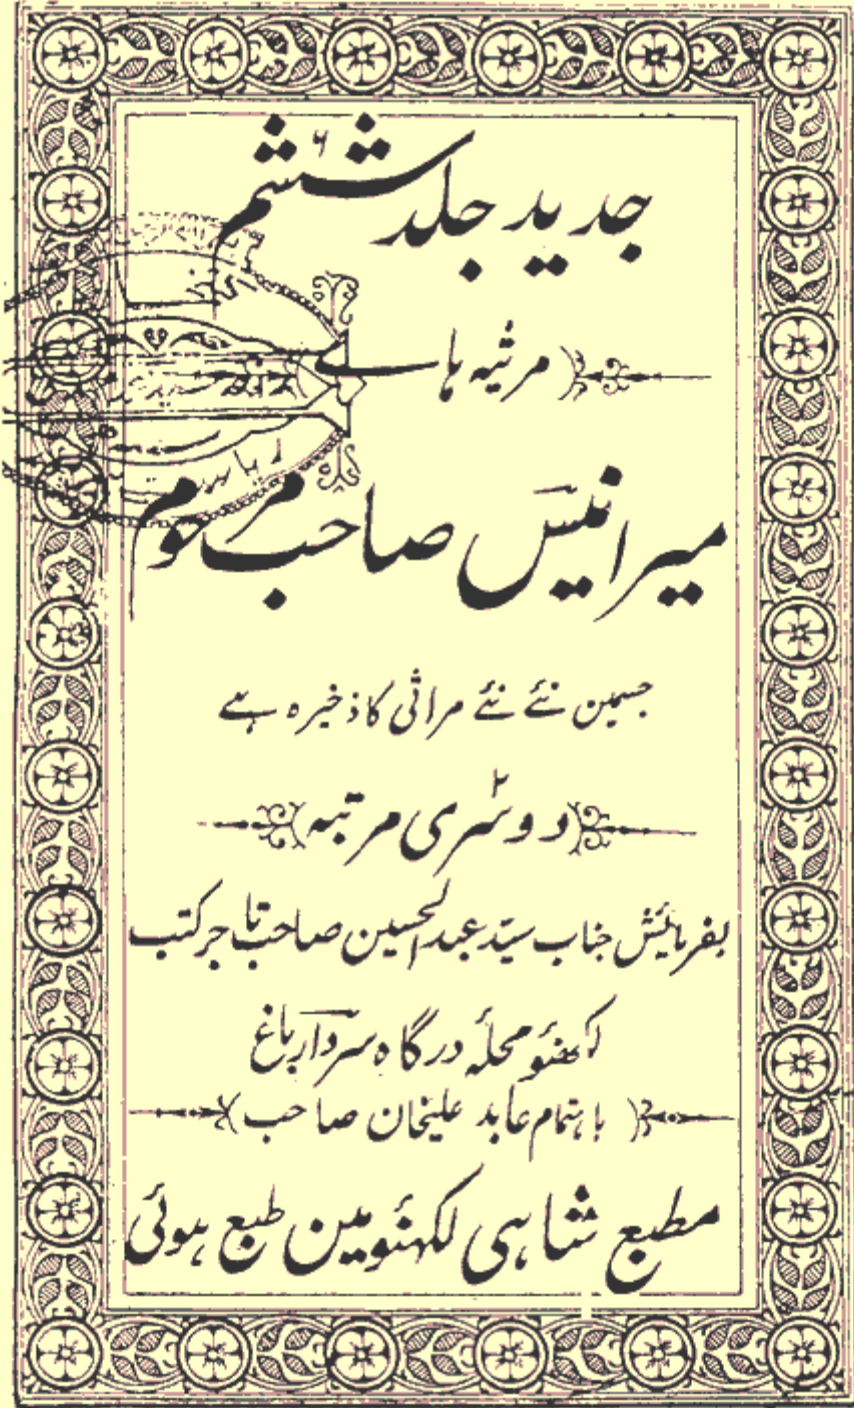 جدید جلد ششم ۶
مرثیہ ہاے
میر انیس صاحب مرحوم
جسمین نئے نئے مراثی کا ذخیرہ ہے
دوسری مرتبہ ۲
بفرمائش جناب سیّد عبدالحسین صاحب تاجر کتب
لکھنؤ محلہ درگاہ سردار باغ
باہتمام عابد علیخان صاحب
مطبع شاہی لکھنؤ مین طبع ہوئی